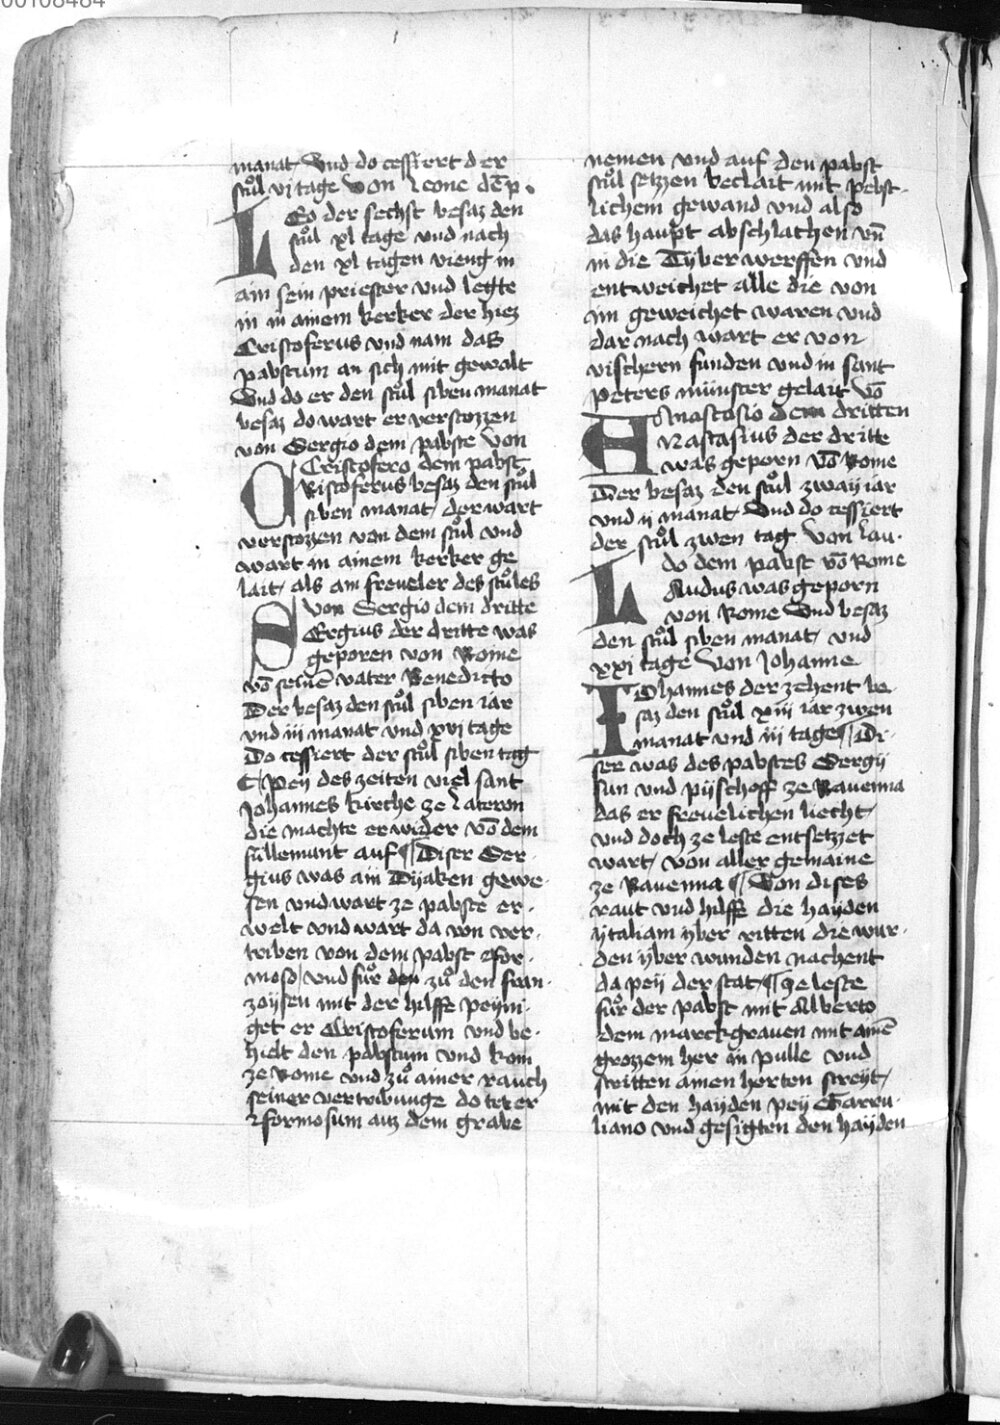 00108484
manat Vnd do cessiert der
stůl vi tage Von Leone dē p.
LEo der sechst besaz den
stůl xl tage vnd nach
den xl tagen vieng in
ain sein priester vnd legte
in in ainem kerker der hiez
Cristoferus vnd nam daß
pabstum an sich mit gewalt
Vnd do er den stůl siben manat
besaz do wart er verstozzen
von Sergio dem pabste Von
Cristofero dem pabst
CRistoferus besaz den stůl
siben manat der wart
verstozzen von dem stůl vnd
wart in ainem kerker ge
lait als ain freueler des stůles
Von Sergio dem dritte
SErgius der dritte was
geporen von Rome
vō seinē vater Benedicto
Der besaz den stůl siben iar
vnd iii manat vnd xvi tage
Do cessiert der stůl siben tag
¶ Pey des zeiten viel sant
Johannes kirche ze Lateron
die machte er wider vō dem
fullemunt auf ¶ Diser Ser-
gius was ain Dyaken gewe-
sen vnd wart ze pabste er-
welt vnd wart da von ver-
triben von dem pabst ffor-
moso vnd fůr den zů den fran-
zoysen mit der hilffe peyni-
get er Cristoferum vnd be-
hielt den pabstum vnd kom
ze Rome vnd zů ainer rauch
seiner vertribunge do tet er
fformosum auz dem grabe
nemen vnd auf den pabst
stůl setzzen beclait mit pebst-
lichem gewand vnd also
das haupt abschlachen vn̄
in die Tyber werffen vnd
entweichet alle die von
im geweichet waren vnd
dar nach wart er von
vischern funden vnd in sant
Peters münster gelait Vō
Anastasio dem dritten
ANastasius der dritte
was geporn vō Rome
Der besaz den stůl zway iar
vnd ii manat Vnd do cessiert
der stůl zwen tag Von Lau-
do dem pabst vō Rome
LAudus was geporn
von Rome Vnd besaz
den stůl siben manat vnd
xxi tage Von Johanne
IOhannes der zehent be
saz den stůl xiii iar zwen
manat vnd iii tage ¶ Di-
ser was des pabstes Sergij
sun vnd pyschoff ze Rauenna
das er freuelichen liecht
vnd doch ze leste entsetzzet
wart von aller gemaine
ze Rauenna ¶ Von dises
raut vnd hilffe die hayden
ytaliam yber ritten die wur-
den yber wunden nachent
da pey der stat ¶ Ze leste
fůr der pabst mit Alberto
dem marckgrauen mit ainē
grozzem her in Pulle vnd
stritten ainen herten streyt
mit den hayden pey Garru-
liano vnd gesigten den hayden